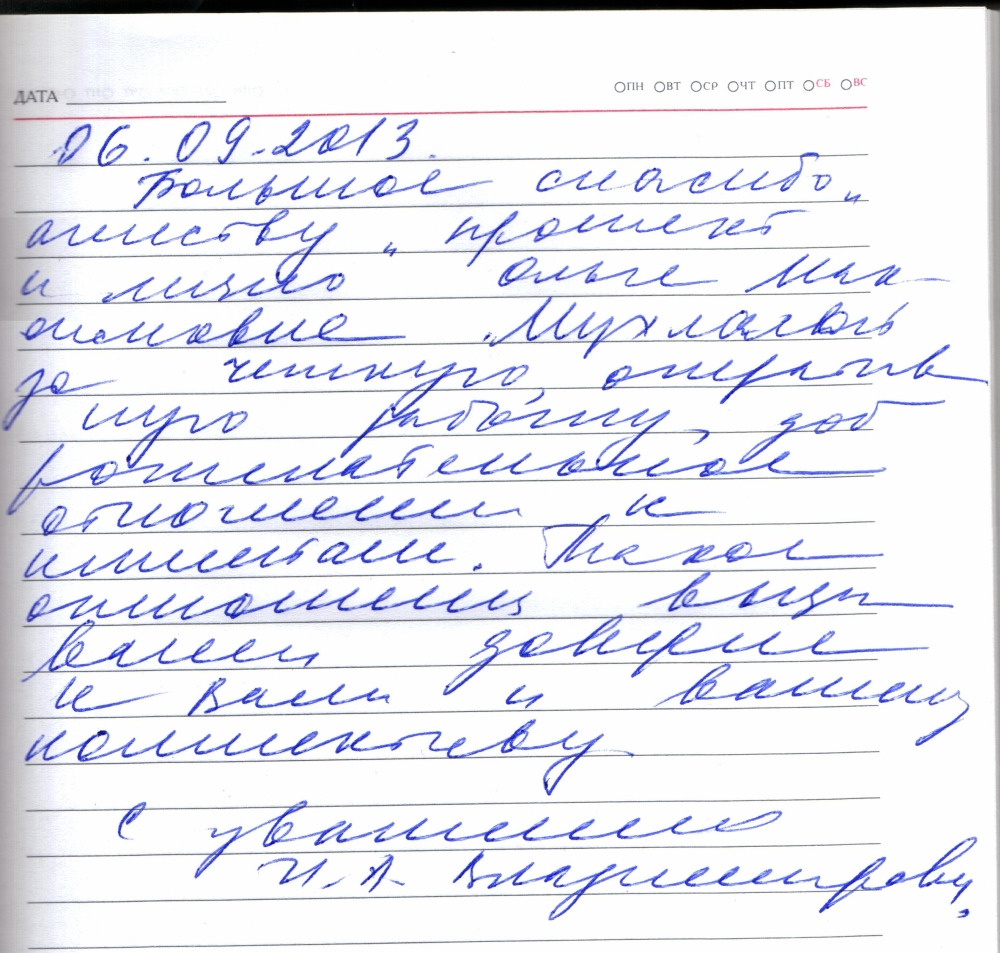 ДАТА ПН ВТ СР ЧТ ПТ СБ ВС
06.09.2013.
Большое спасибо
агенству „
и лично Ольге Мак-
симовне
за четкую, оператив
ную работу, доб
рожелательное
отношение к
клиентам. Такое
отношение вызы
вает доверие
к Вам и вашему
коллективу
С уважением
И.А. Владимирова